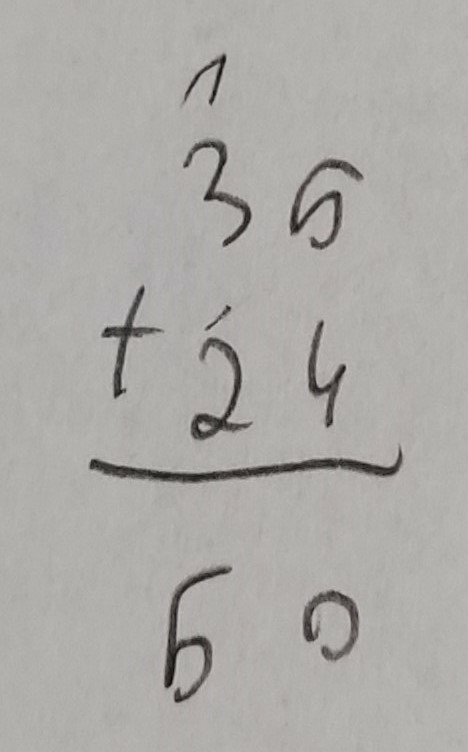 1
36
+ 24
60